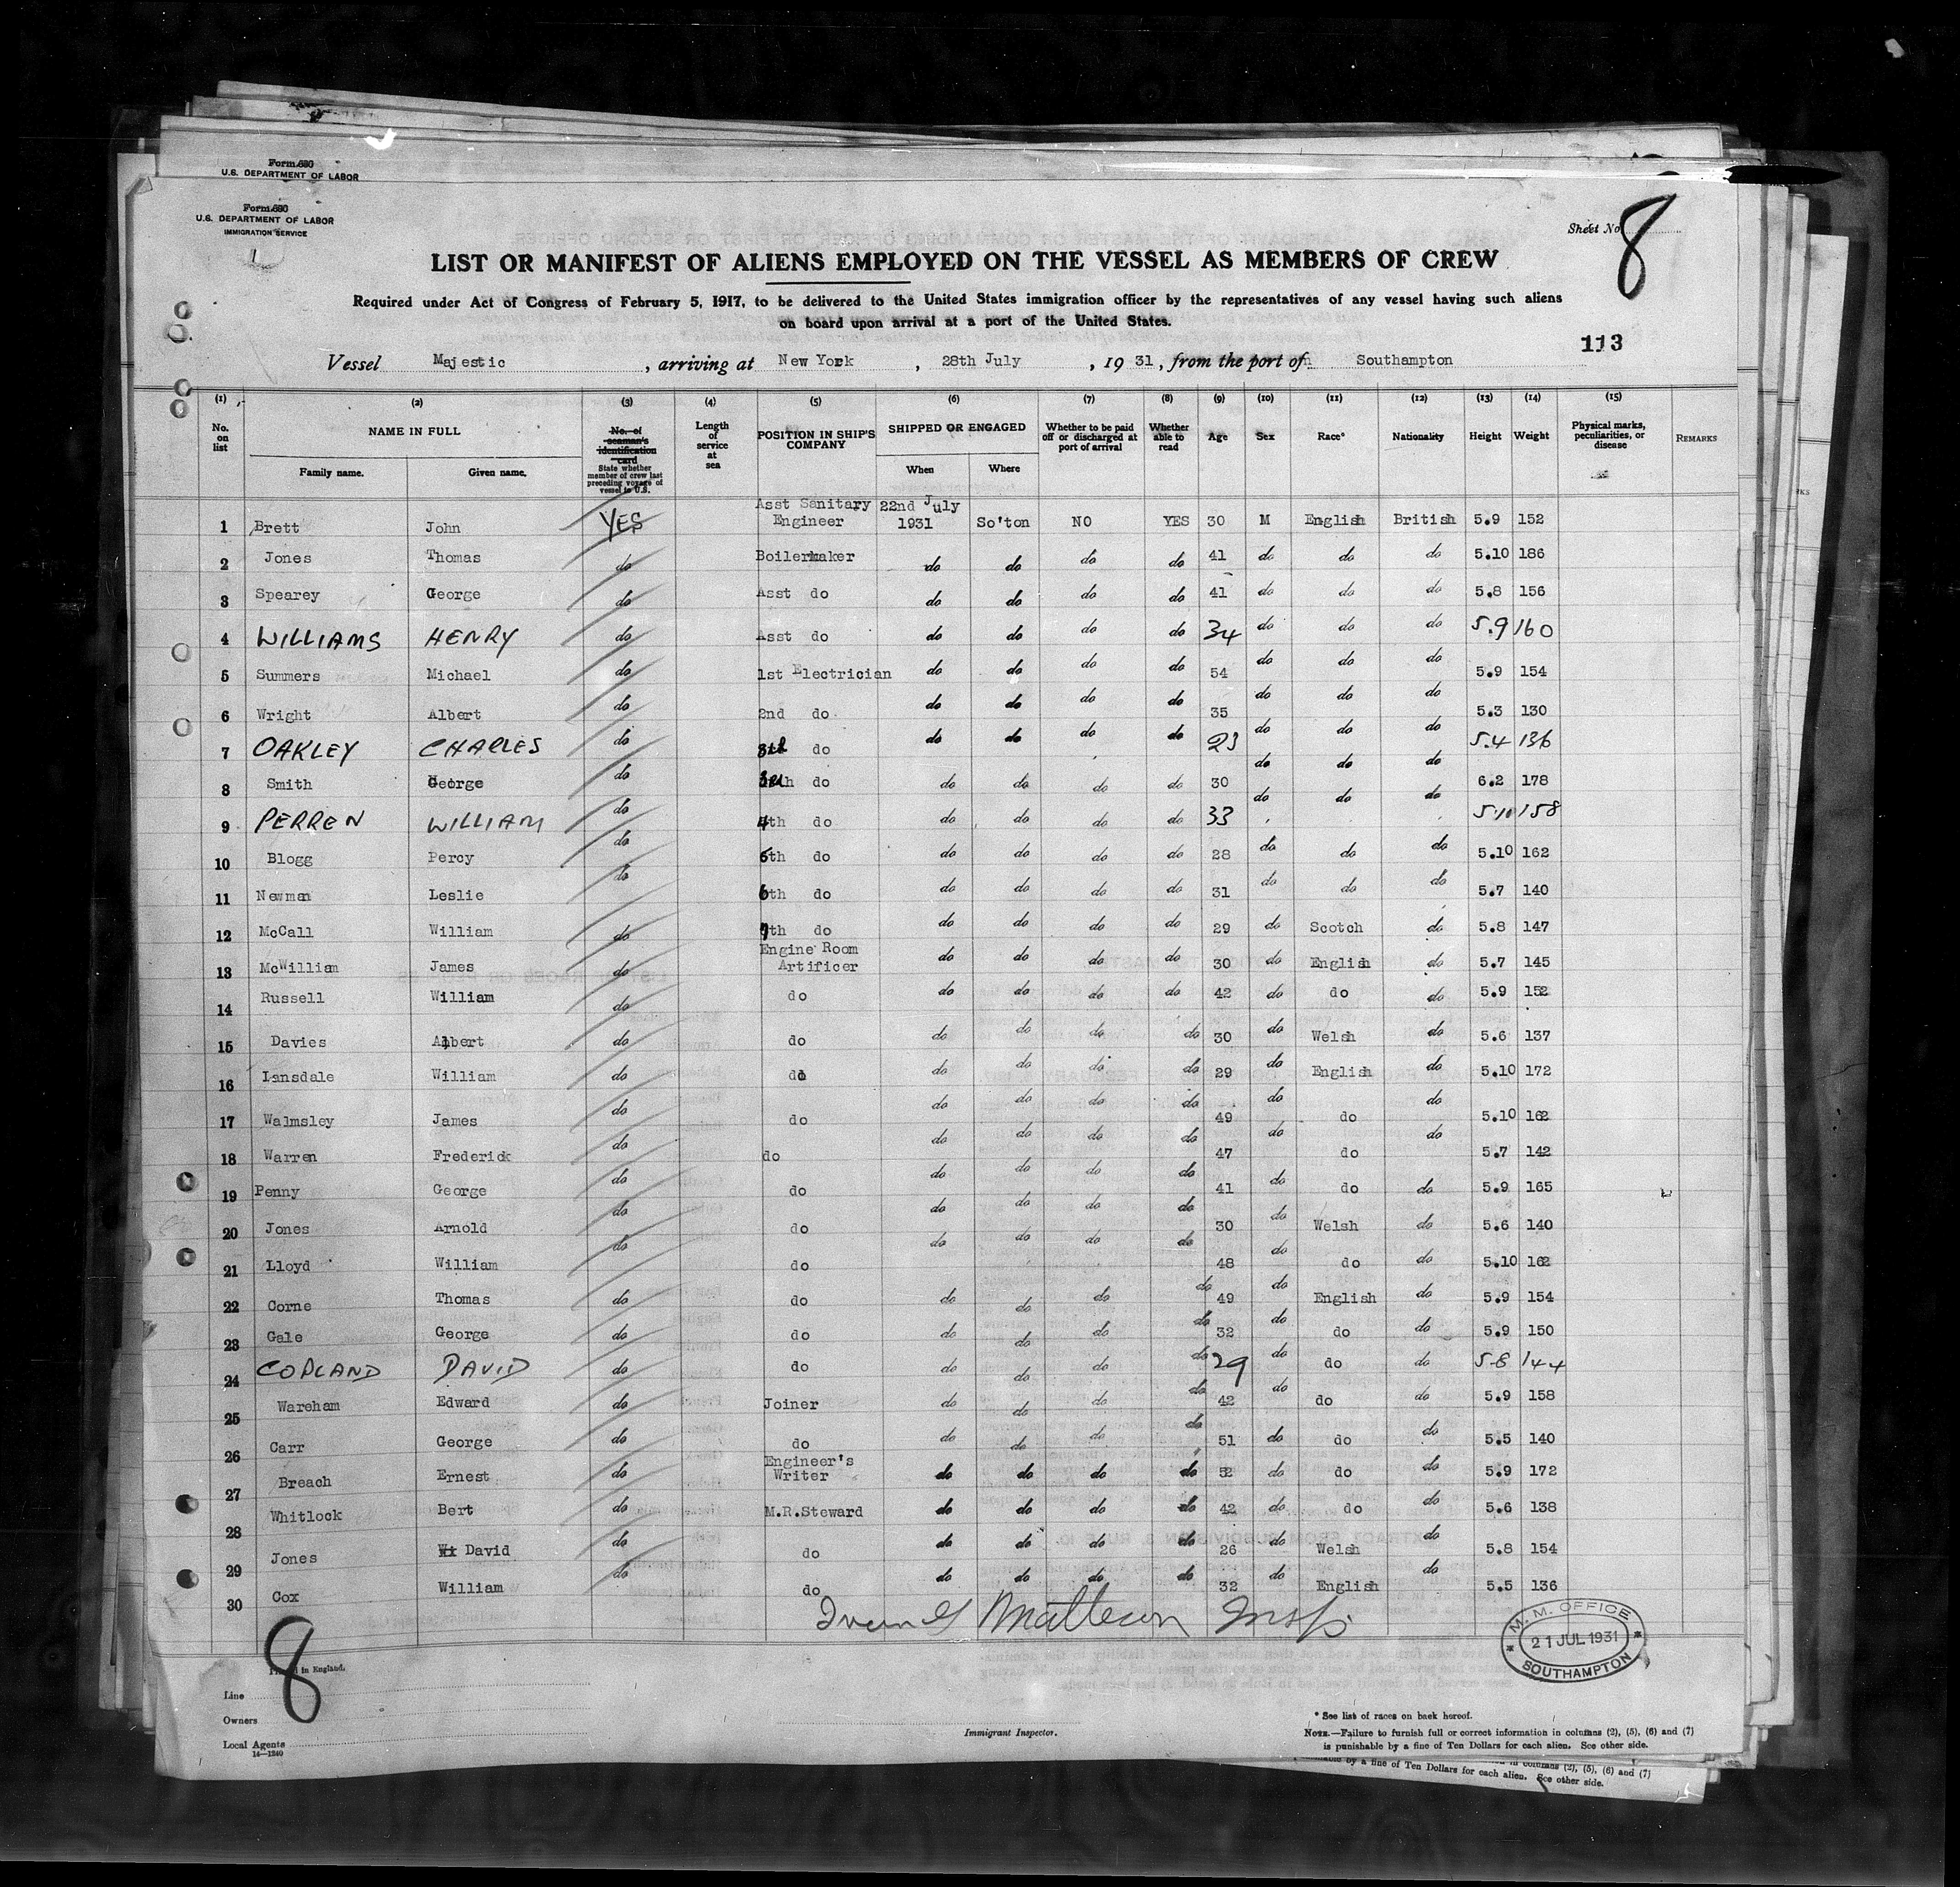 Form 680
U.S. DEPARTMENT OF LABOR
Form 680
U.S. DEPARTMENT OF LABOR
IMMIGRATION SERVICE
1
Sheet No 8
LIST OR MANIFEST OF ALIENS EMPLOYED ON THE VESSEL AS MEMBERS OF CREW
Required under Act of Congress of February 5, 1917, to be delivered to the United States immigration officer by the representatives of any vessel having such aliens
on board upon arrival at a port of the United States.
113
Vessel Majestic, arriving at New York, 28th July, 1931, from the port of Southampton
(1) (2) (3) (4) (5) (6) (7) (8) (9) (10) (11) (12) (13) (14) (15)
No. on list NAME IN FULL Family name. Given name. No. of seaman's identification card State whether member of crew last preceding voyage of vessel to U.S. Length of service at sea POSITION IN SHIP'S COMPANY SHIPPED OR ENGAGED When Where Whether to be paid off or discharged at port of arrival Whether able to read Age Sex Race* Nationality Height Weight Physical marks, peculiarities, or disease REMARKS
1 Brett John YES Asst Sanitary Engineer 22nd July 1931 So'ton NO YES 30 M English British 5.9 152
2 Jones Thomas do Boilermaker do do do do 41 do do do 5.10 186
3 Spearey George do Asst do do do do do 41 do do do 5.8 156
4 WILLIAMS HENRY do Asst do do do do do 34 do do do 5.9 160
5 Summers Michael do 1st Electrician do do do do 54 do do do 5.9 154
6 Wright Albert do 2nd do do do do do 35 do do do 5.3 130
7 OAKLEY CHARLES do do do do do do 23 do do do 5.4 136
8 Smith George do do do do do do 30 do do do 6.2 178
9 PERREN WILLIAM do 4th do do do do do 33 do do do 5.10 158
10 Blogg Percy do 5th do do do do do 28 do do do 5.10 162
11 Newman Leslie do 6th do do do do do 31 do do do 5.7 140
12 McCall William do 7th do do do do do 29 do Scotch do 5.8 147
13 McWilliam James do Engine Room Artificer do do do do 30 do English do 5.7 145
14 Russell William do do do do do do 42 do do do 5.9 152
15 Davies Albert do do do do do do 30 do Welsh do 5.6 137
16 Lansdale William do do do do do do 29 do English do 5.10 172
17 Walmsley James do do do do do do 49 do do do 5.10 162
18 Warren Frederick do do do do do do 47 do do do 5.7 142
19 Penny George do do do do do do 41 do do do 5.9 165
20 Jones Arnold do do do do do do 30 do Welsh do 5.6 140
21 Lloyd William do do do do do do 48 do do do 5.10 162
22 Corne Thomas do do do do do do 49 do English do 5.9 154
23 Gale George do do do do do do 32 do do do 5.9 150
24 COPLAND DAVID do do do do do do 29 do do do 5.8 144
25 Wareham Edward do Joiner do do do do 42 do do do 5.9 158
26 Carr George do do do do do do 51 do do do 5.5 140
27 Breach Ernest do Engineer's Writer do do do do 52 do do do 5.9 172
28 Whitlock Bert do M.R.Steward do do do do 42 do do do 5.6 138
29 Jones David do do do do do do 26 do Welsh do 5.8 154
30 Cox William do do do do do do 32 do English do 5.5 136
M. M. OFFICE
21 JUL 1931
SOUTHAMPTON
8
Printed in England.
Line
Owners
Local Agents
14—1240
Immigrant Inspector.
* See list of races on back hereof.
NOTE.—Failure to furnish full or correct information in columns (2), (5), (6) and (7)
is punishable by a fine of Ten Dollars for each alien. See other side.
by a fine of Ten Dollars for each alien. See other side.